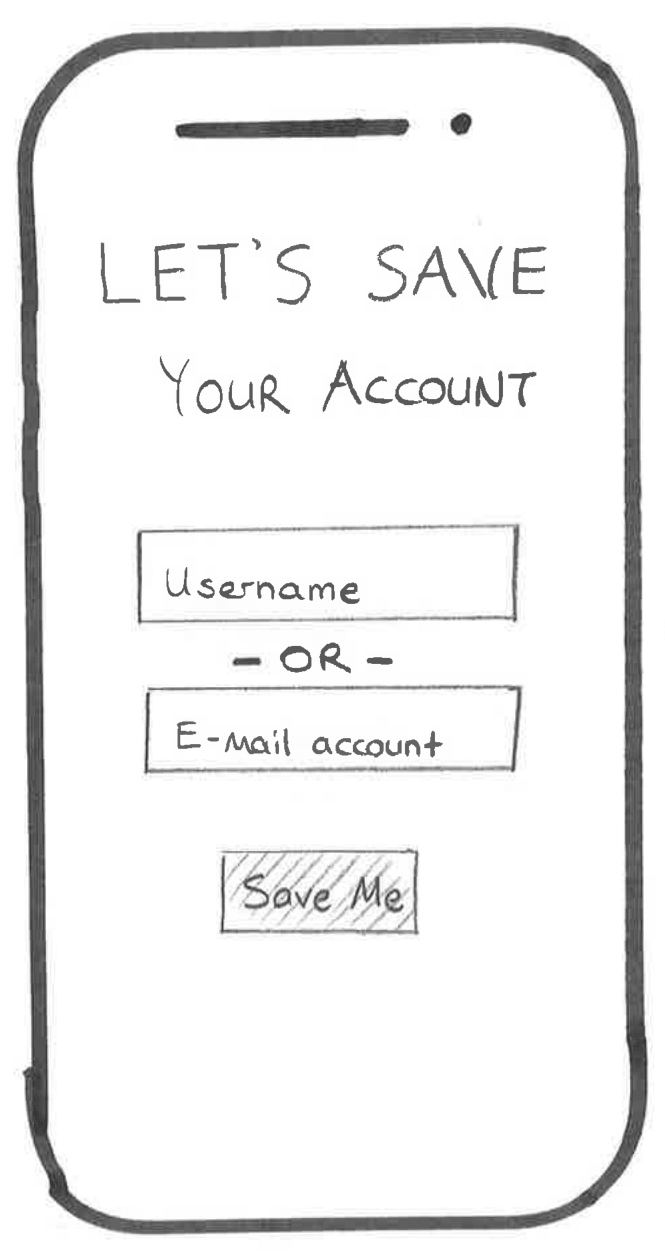 LET'S SAVE
YOUR ACCOUNT
Username
- OR -
E-Mail account
Save Me